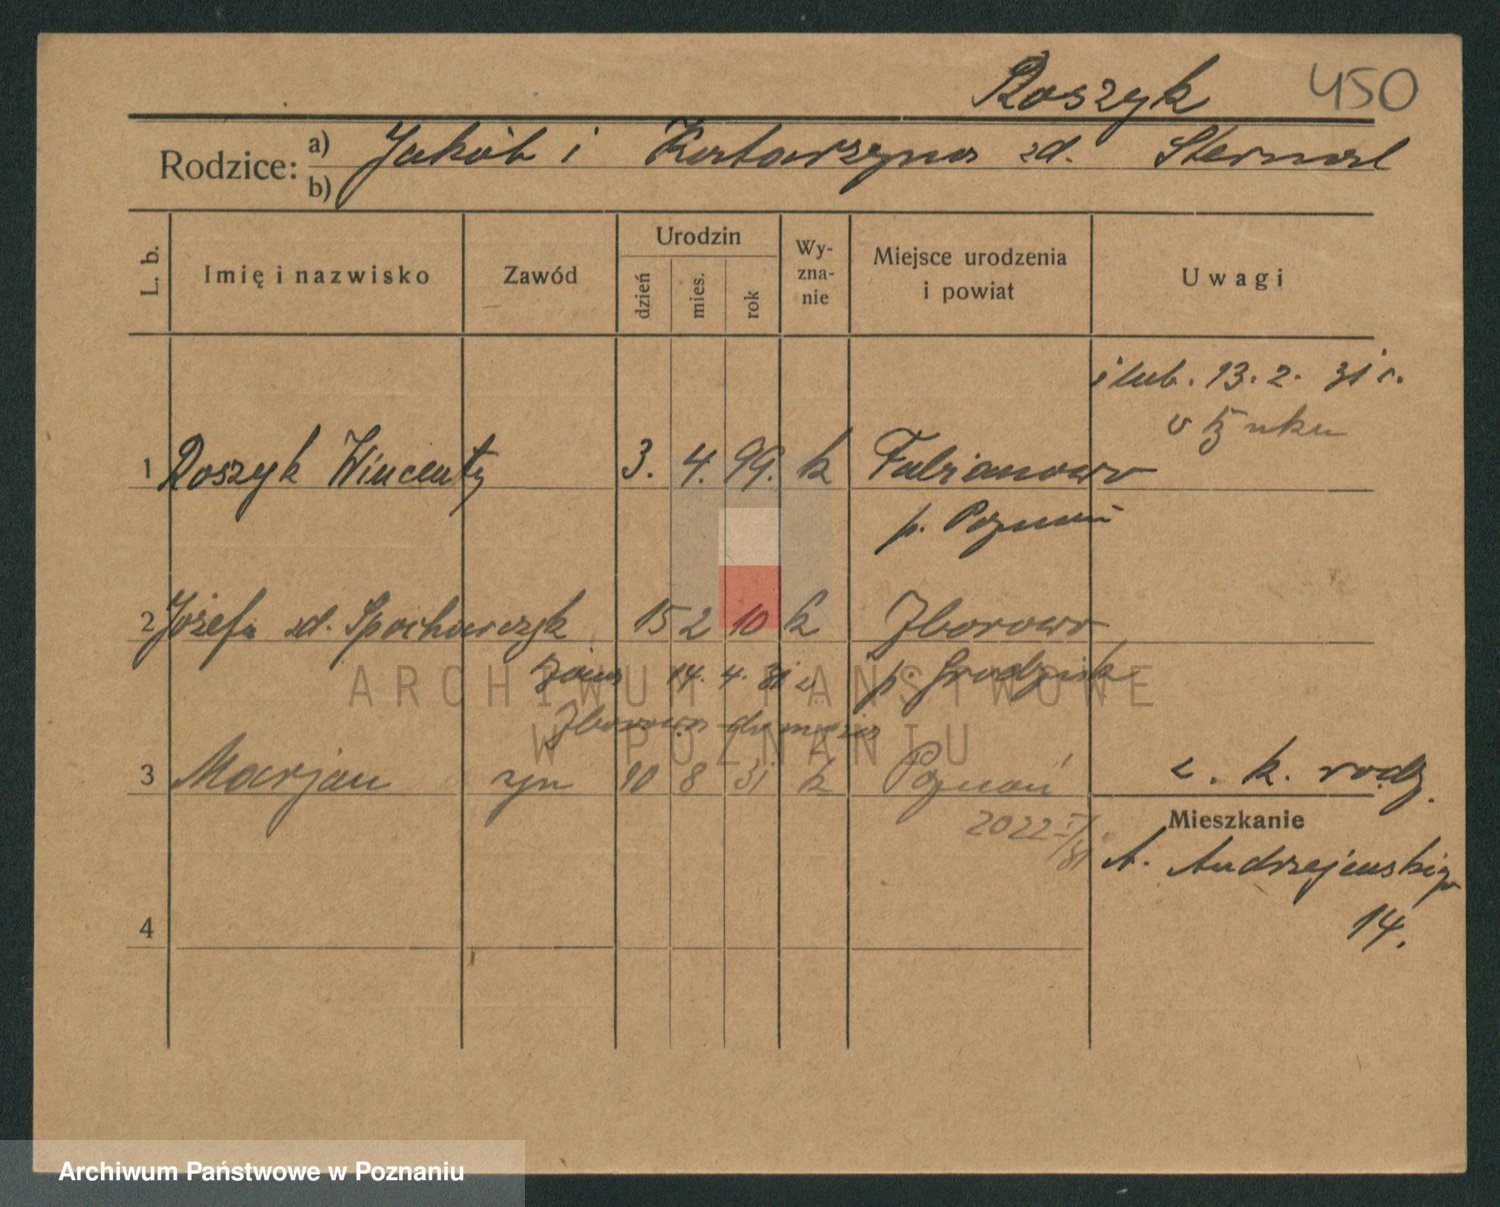 Roszyk 450
Rodzice: a) Jakób i Katarzyna zd. Sternal
b)
L. b. Imię i nazwisko Zawód Urodzin dzień mies. rok Wy-zna-nie Miejsce urodzenia i powiat Uwagi
ślub. 13. 2. 31 r.
1 Roszyk Wincenty 3. 4. 99. k Fabianowo
p. Poznań
2 Józefa zd. Spochaczyk 15 2 10 k Zborowo
14. 4. 31 z p. Grodzisk
Zborowa do męża
3 Marjan syn 10 8 31 k Poznań z. k. rodz.
2022 I/31
Mieszkanie
A. Andrzejewskiego
14.
4
ARCHIWUM PAŃSTWOWE
W POZNANIU
Archiwum Państwowe w Poznaniu